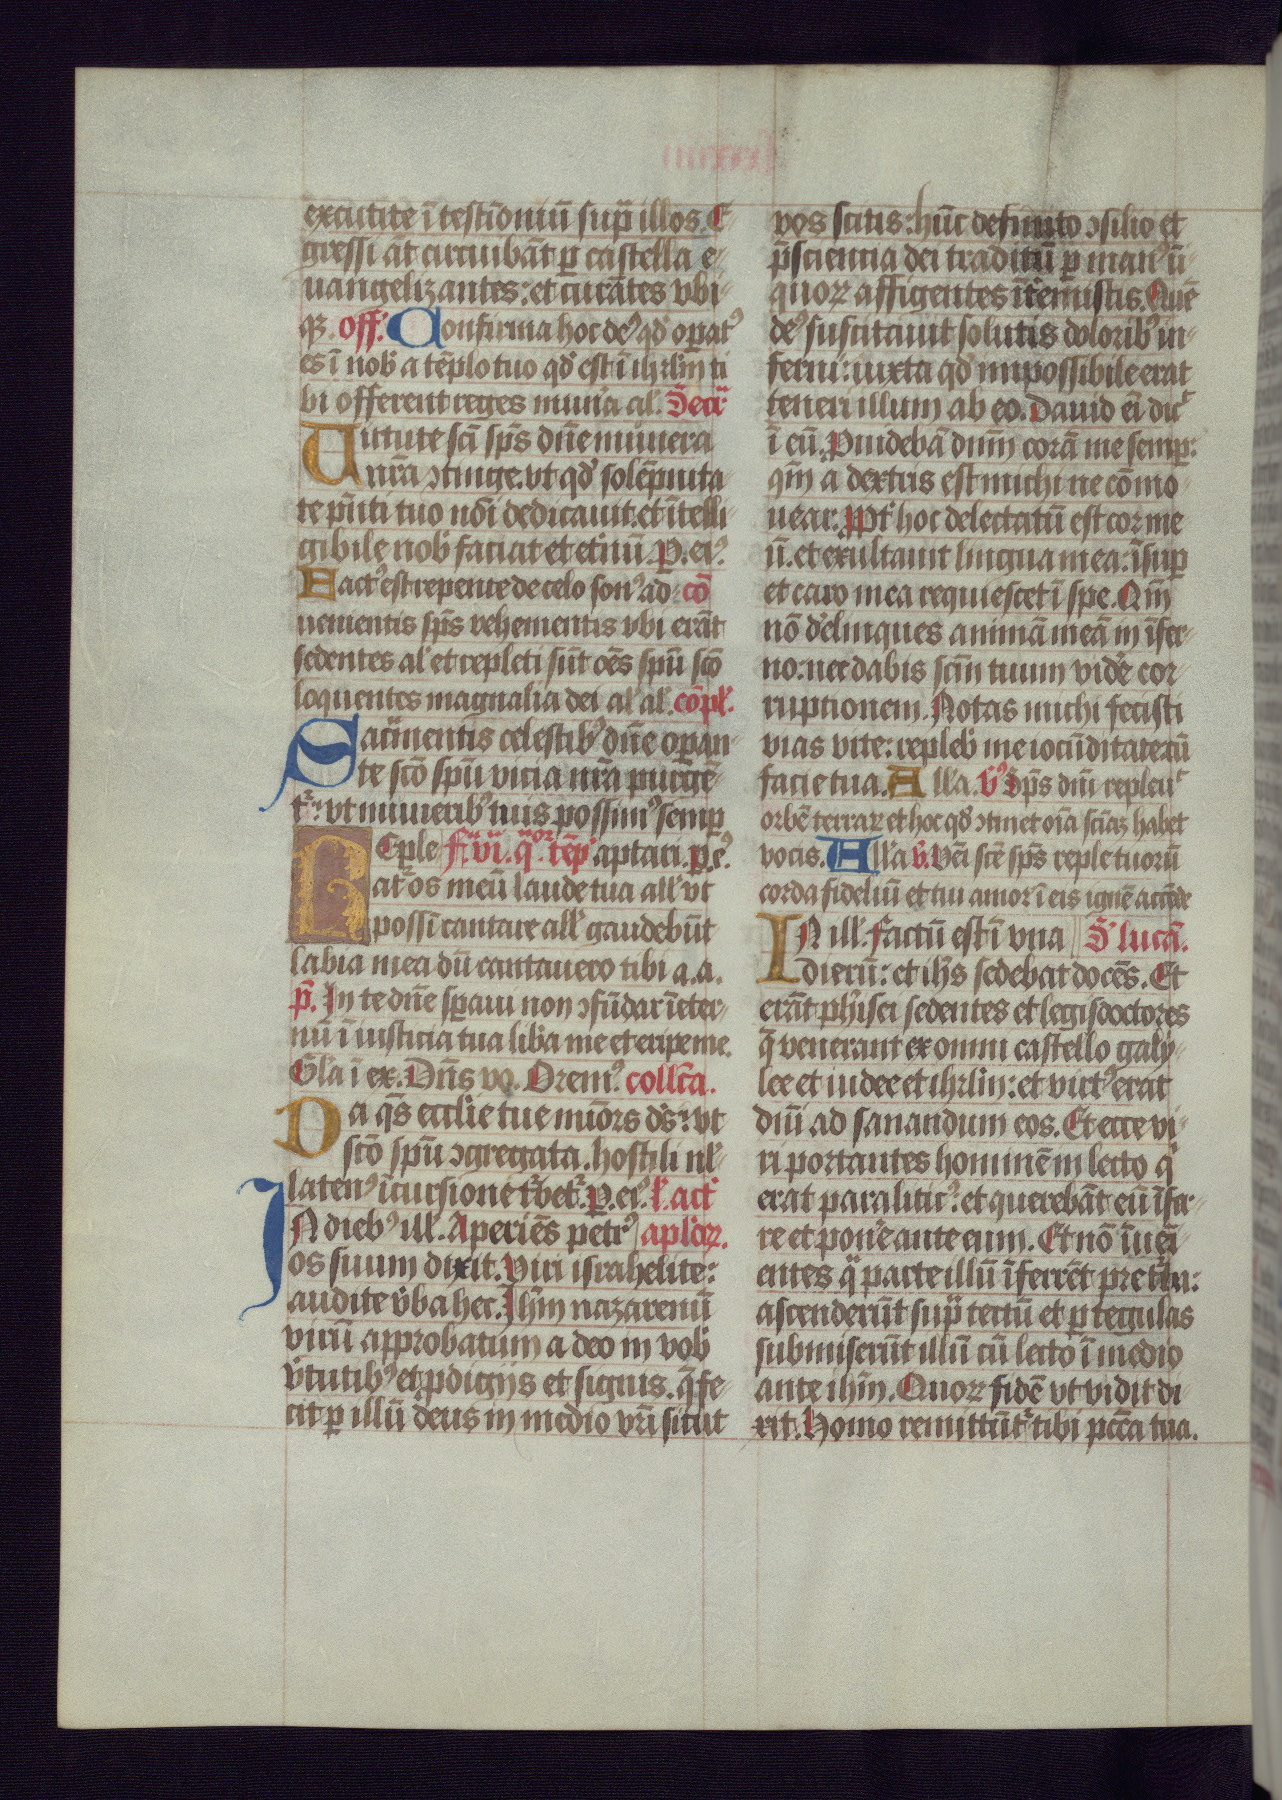 excutite ī testīoniū sup̄ illos. E
gressi āt circuibāt ꝑ castella e
uangelizantes: et curātes vbi
qꝫ. off. Confirma hoc deꝰ qd̓ oꝑatꝰ
es ī nob̓ a tēplo tuo qd̓ est ī ihrl̄m ti
bi offerent reges mun̓a al̓. Sec̄r
Uirtute sc̄i sp̄s dn̄e munera
nr̄a ↄtinge. vt qd̓ solēpnita
te p̄nti tuo nōi dedicauit. et ītelli
gibile nob̓ faciat et et̓nū. P. eiꝰ.
Factꝰ est repente de celo sonꝰ ad cō
uenientis sp̄s vehementis vbi erāt
sedentes al̓ et repleti sūt oēs spū scō
loquentes magnalia dei al̓ al̓. cōpl̓.
Sacr̄mentis celestibꝰ dn̄e oꝑan
te scō spū vicia nr̄a purgē
tr̓: vt muneribꝰ tuis possimꝰ semꝑ
Eple fr̄ vi. qͣ. or tēp̓ aptari. p. e.
Rat̓ os meū laude tua all̓ vt
possī cantare all̓ gaudebūt
labia mea dū cantauero tibi a. a.
p̄. In te dn̄e sꝑaui non ↄfūdar īeter
nū ī iusticia tua lib̓a me et eripe me.
Gl̄a ī ex. Dn̄s vo. Oremꝰ. collc̄a.
Da qs̄ eccl̄ie tue mīors ds̄: vt
scō spū ↄgregata. hostili nl̓
latenꝰ īcursione tʳbetʳ. P. eiꝰ. l̓. act̓
IN diebꝰ ill̓. Aperiēs petrꝰ apl̓oꝝ.
os suum dixit. Viri israhelite:
audite v̓ba hec. Ihm̄ nazarenū
virū approbatum a deo in vob̓
v̓tutibꝰ et ꝓdigijs et signis. q̄ fe
cit ꝑ illū deus in medio vr̄i sicut
vos scitis: hūc definito ↄsilio et
p̄sciencia dei traditū ꝑ manꝰ ī
iquoꝝ affigentes īt̓emistis. Quē
deꝰ suscitauit solutis doloribꝰ in
ferni: iuxta qd̓ impossibile erat
teneri illum ab eo. Dauid ei̅ dic̓
ī eū. Puidebā dnm̄ corā me semꝑ:
qm̄ a dextris est michi ne cōmo
uear. Pt̓ hoc delectatū est cor me
ū. et exultauit lingua mea: īsuꝑ
et caro mea requiescet ī spe. Qm̄
nō d̓elinques animā meā in īfer
no: nec dabis sc̄m tuum vid̓e cor
ruptionem. Notas michi fecisti
vias vite: repleb̓ me iocūditate cū
facie tua. Alla. v̓ Sp̄s dn̄i repleu̓
orbē terraꝝ et hoc qd̓ ↄtinet oīa sciāꝫ habet
vocis. Alla v̓. Veni scē sp̄s reple tuorū
corda fideliū et tui amor̓ ī eis ignē accēde
IN ill̓. Factū est ī vna S̓. lucā.
dierū: et ihs̄ sedebat docēs. Et
erāt ph̓isei sedentes et legisdoctores
q̄ venerant ex omni castello galy
lee et iudee et ihrl̄m: et virtꝰ erat
dn̄i ad sanandum eos. Et ecce vi
ri portantes hominē in lecto qͥ
erat paraliticꝰ. et querebāt eū īfer
re et pon̓e ante eum. Et nō īueī
entes qͣ parte illū īferrēt pre tʳba:
ascenderūt supͣ tectū et ꝑ tegulas
submiserūt illū cū lecto ī medio
ante ihm̄. Quoꝝ fidē vt vidit di
xit. Homo remittūtʳ tibi pcc̄a tua.